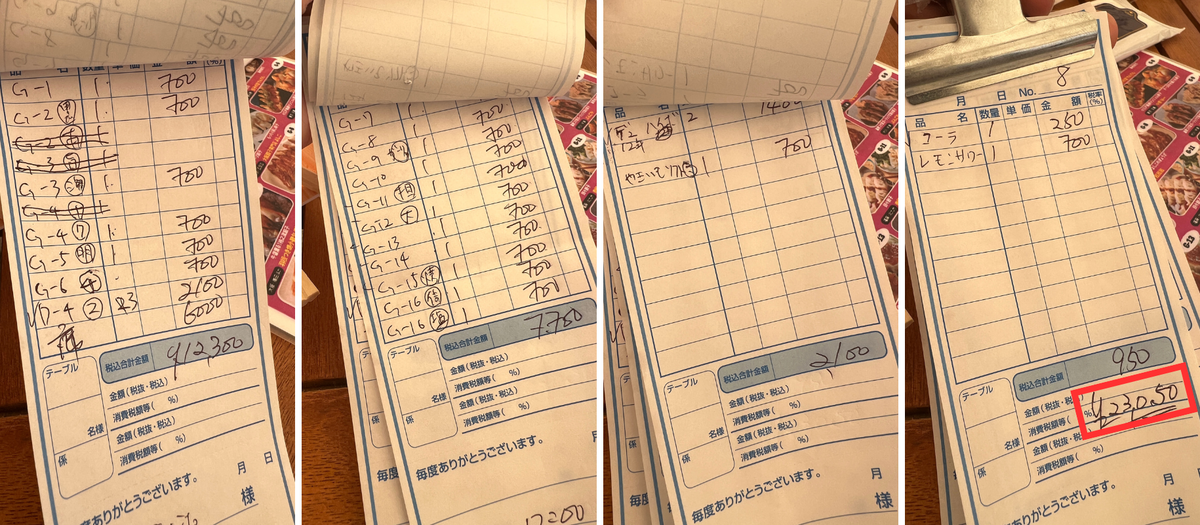 品 名 数量 単価 金 額 (%)
G-1 1 700
G-2 1 700
G-2
G-3
G-3 1 700
G-4
G-4 ワ 1 700
G-5 明 1 700
G-6 700
2100
6000
税込合計金額 ¥12,300
テーブル
金額(税抜・税込)
消費税額等( %)
名様
金額(税抜・税込)
係
消費税額等( %)
毎度ありがとうございます。
月 日
様
G-7 1 700
G-8 1 700
G-9 1 700
G-10 700
G-11 1 700
G-12 1 700
G-13 1 700
G-14 1 700
G-15 1 700
G-16 1 700
G-16 塩 1 700
税込合計金額 7,700
テーブル
金額(税抜・税込)
消費税額等( %)
名様
金額(税抜・税込)
係
消費税額等( %)
毎度ありがとうございます。
月
様
品 名 数量 単価 金 額 税率(%)
2 1400
1 700
税込合計金額 2,100
テーブル
金額(税抜・税込)
消費税額等( %)
名様
金額(税抜・税込)
係
消費税額等( %)
毎度ありがとうございます。
月
様
月 日 No. 8
品 名 数量 単価 金 額 税率(%)
コーラ 1 250
レモンサワー 1 700
税込合計金額 950
テーブル
金額(税抜・税込)
¥23,050
消費税額等( %)
名様
金額(税抜・税込)
係
消費税額等( %)
毎度ありがとうございます。
月
様